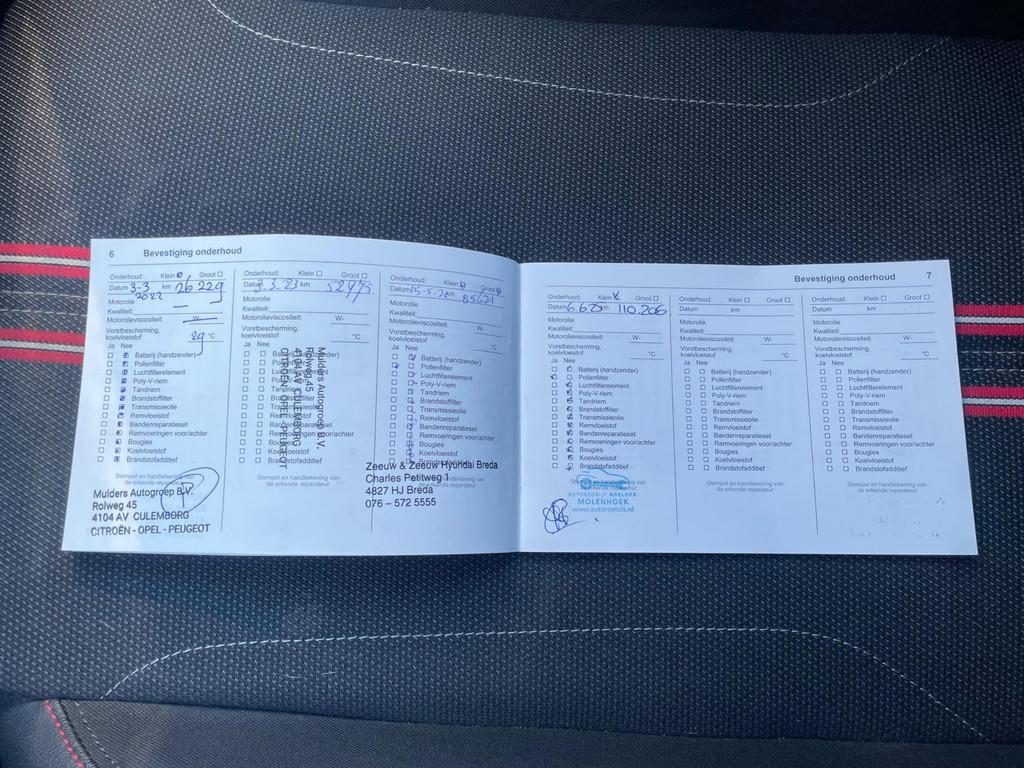 6 Bevestiging onderhoud
Onderhoud: Klein Groot
Datum 3-3 km 26229
2022
Motorolie
Kwaliteit:
Motorolieviscositeit: W-
Vorstbescherming,
koelvloeistof 29 °C
Ja Nee
Batterij (handzender)
Pollenfilter
Luchtfilterelement
Poly-V-riem
Tandriem
Brandstoffilter
Transmissieolie
Remvloeistof
Bandenreparatieset
Remvoeringen voor/achter
Bougies
Koelvloeistof
Brandstofadditief
Stempel en handtekening van
de erkende reparateur
Mulders Autogroep B.V.
Rolweg 45
4104 AV CULEMBORG
CITROËN - OPEL - PEUGEOT
Onderhoud: Klein Groot
Datum 3.3.'23 km 52475
Motorolie
Kwaliteit:
Motorolieviscositeit: W-
Vorstbescherming,
koelvloeistof °C
Ja Nee
Mulders Autogroep B.V.
Rolweg 45
4104 AV CULEMBORG
CITROËN - OPEL - PEUGEOT
Stempel en handtekening van
de erkende reparateur
Onderhoud: Klein Groot
Datum 15-5-24 km 85621
Motorolie
Kwaliteit:
Motorolieviscositeit: W-
Vorstbescherming,
koelvloeistof °C
Ja Nee
Batterij (handzender)
Pollenfilter
Luchtfilterelement
Poly-V-riem
Tandriem
Brandstoffilter
Transmissieolie
Remvloeistof
Bandenreparatieset
Remvoeringen voor/achter
Bougies
Koelvloeistof
Zeeuw & Zeeuw Hyundai Breda
Charles Petitweg 1
4827 HJ Breda
076 – 572 5555
Bevestiging onderhoud 7
Onderhoud: Klein Groot
Datum 6.6.25 km 110.206
Motorolie
Kwaliteit:
Motorolieviscositeit: W-
Vorstbescherming,
koelvloeistof °C
Ja Nee
Batterij (handzender)
Pollenfilter
Luchtfilterelement
Poly-V-riem
Tandriem
Brandstoffilter
Transmissieolie
Remvloeistof
Bandenreparatieset
Remvoeringen voor/achter
Bougies
Koelvloeistof
Brandstofadditief
AUTOBEDRIJF ROELOFS
MOLENHOEK
www.autoroelofs.nl
Onderhoud: Klein Groot
Datum km
Motorolie
Kwaliteit:
Motorolieviscositeit: W-
Vorstbescherming,
koelvloeistof °C
Ja Nee
Batterij (handzender)
Pollenfilter
Luchtfilterelement
Poly-V-riem
Tandriem
Brandstoffilter
Transmissieolie
Remvloeistof
Bandenreparatieset
Remvoeringen voor/achter
Bougies
Koelvloeistof
Brandstofadditief
Stempel en handtekening van
de erkende reparateur
Onderhoud: Klein Groot
Datum km
Motorolie
Kwaliteit:
Motorolieviscositeit: W-
Vorstbescherming,
koelvloeistof °C
Ja Nee
Batterij (handzender)
Pollenfilter
Luchtfilterelement
Poly-V-riem
Tandriem
Brandstoffilter
Transmissieolie
Remvloeistof
Bandenreparatieset
Remvoeringen voor/achter
Bougies
Koelvloeistof
Brandstofadditief
Stempel en handtekening van
de erkende reparateur